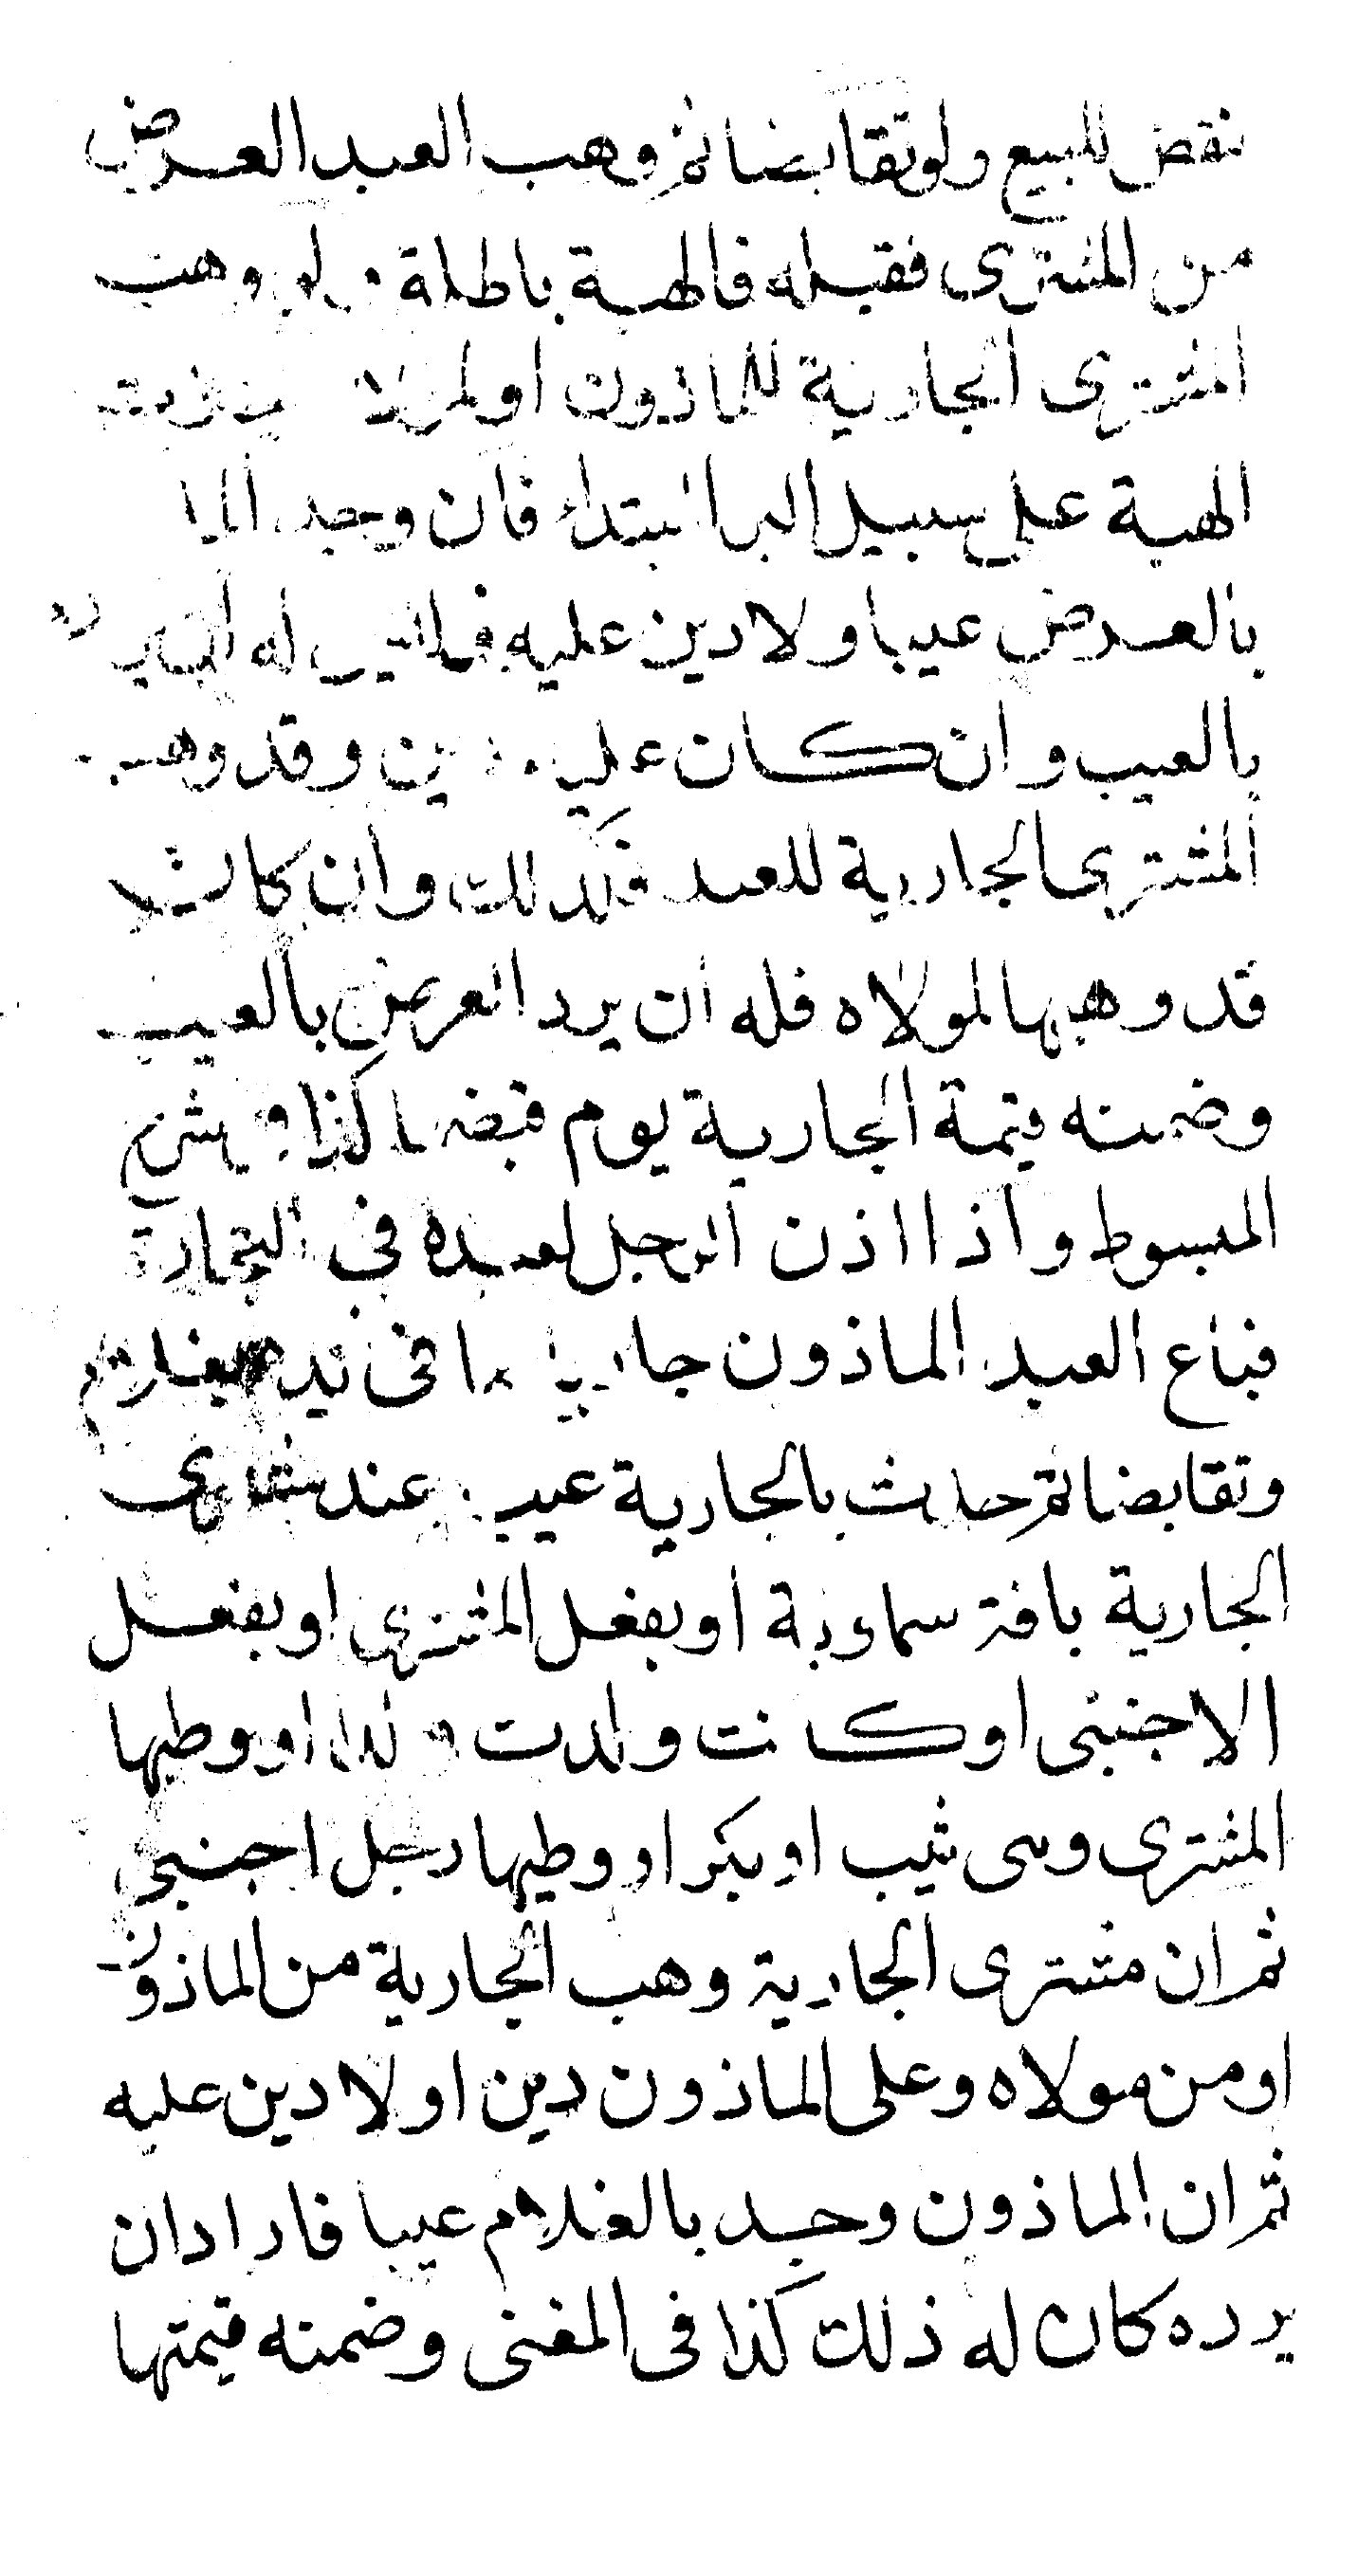 نقض للبيع ولو تقابضا ثم وهب العبد العرض
من المشترى فقبله فالهبة باطلة ولو وهب
المشترى الجارية للماذون او لمولاه
الهبة على سبيل البر ابتداء فان وجد
بالعرض عيبا ولا دين عليه فليس له ان يرده
بالعيب وان كان عليه دين وقد وهب
المشترى الجارية للعبد فكذلك وان كان
قد وهبها لمولاه فله ان يرد العرض بالعيب
وضمنه قيمة الجارية يوم قبضها كذا فى شرح
المبسوط واذا اذن الرجل لعبده فى التجارة
فباع العبد الماذون جارية مما فى يده بغلام
وتقابضا ثم حدث بالجارية عيب عند مشترى
الجارية بافة سماوية او بفعل المشترى او بفعل
الاجنبى او كانت ولدت ولدا او وطيها
المشترى وهى ثيب او بكر او وطيها رجل اجنبى
ثم ان مشترى الجارية وهب الجارية من الماذون
او من مولاه وعلى الماذون دين او لا دين عليه
ثم ان الماذون وجد بالغلام عيبا فاراد ان
يرده كان له ذلك كذا فى المغنى وضمنه قيمتها